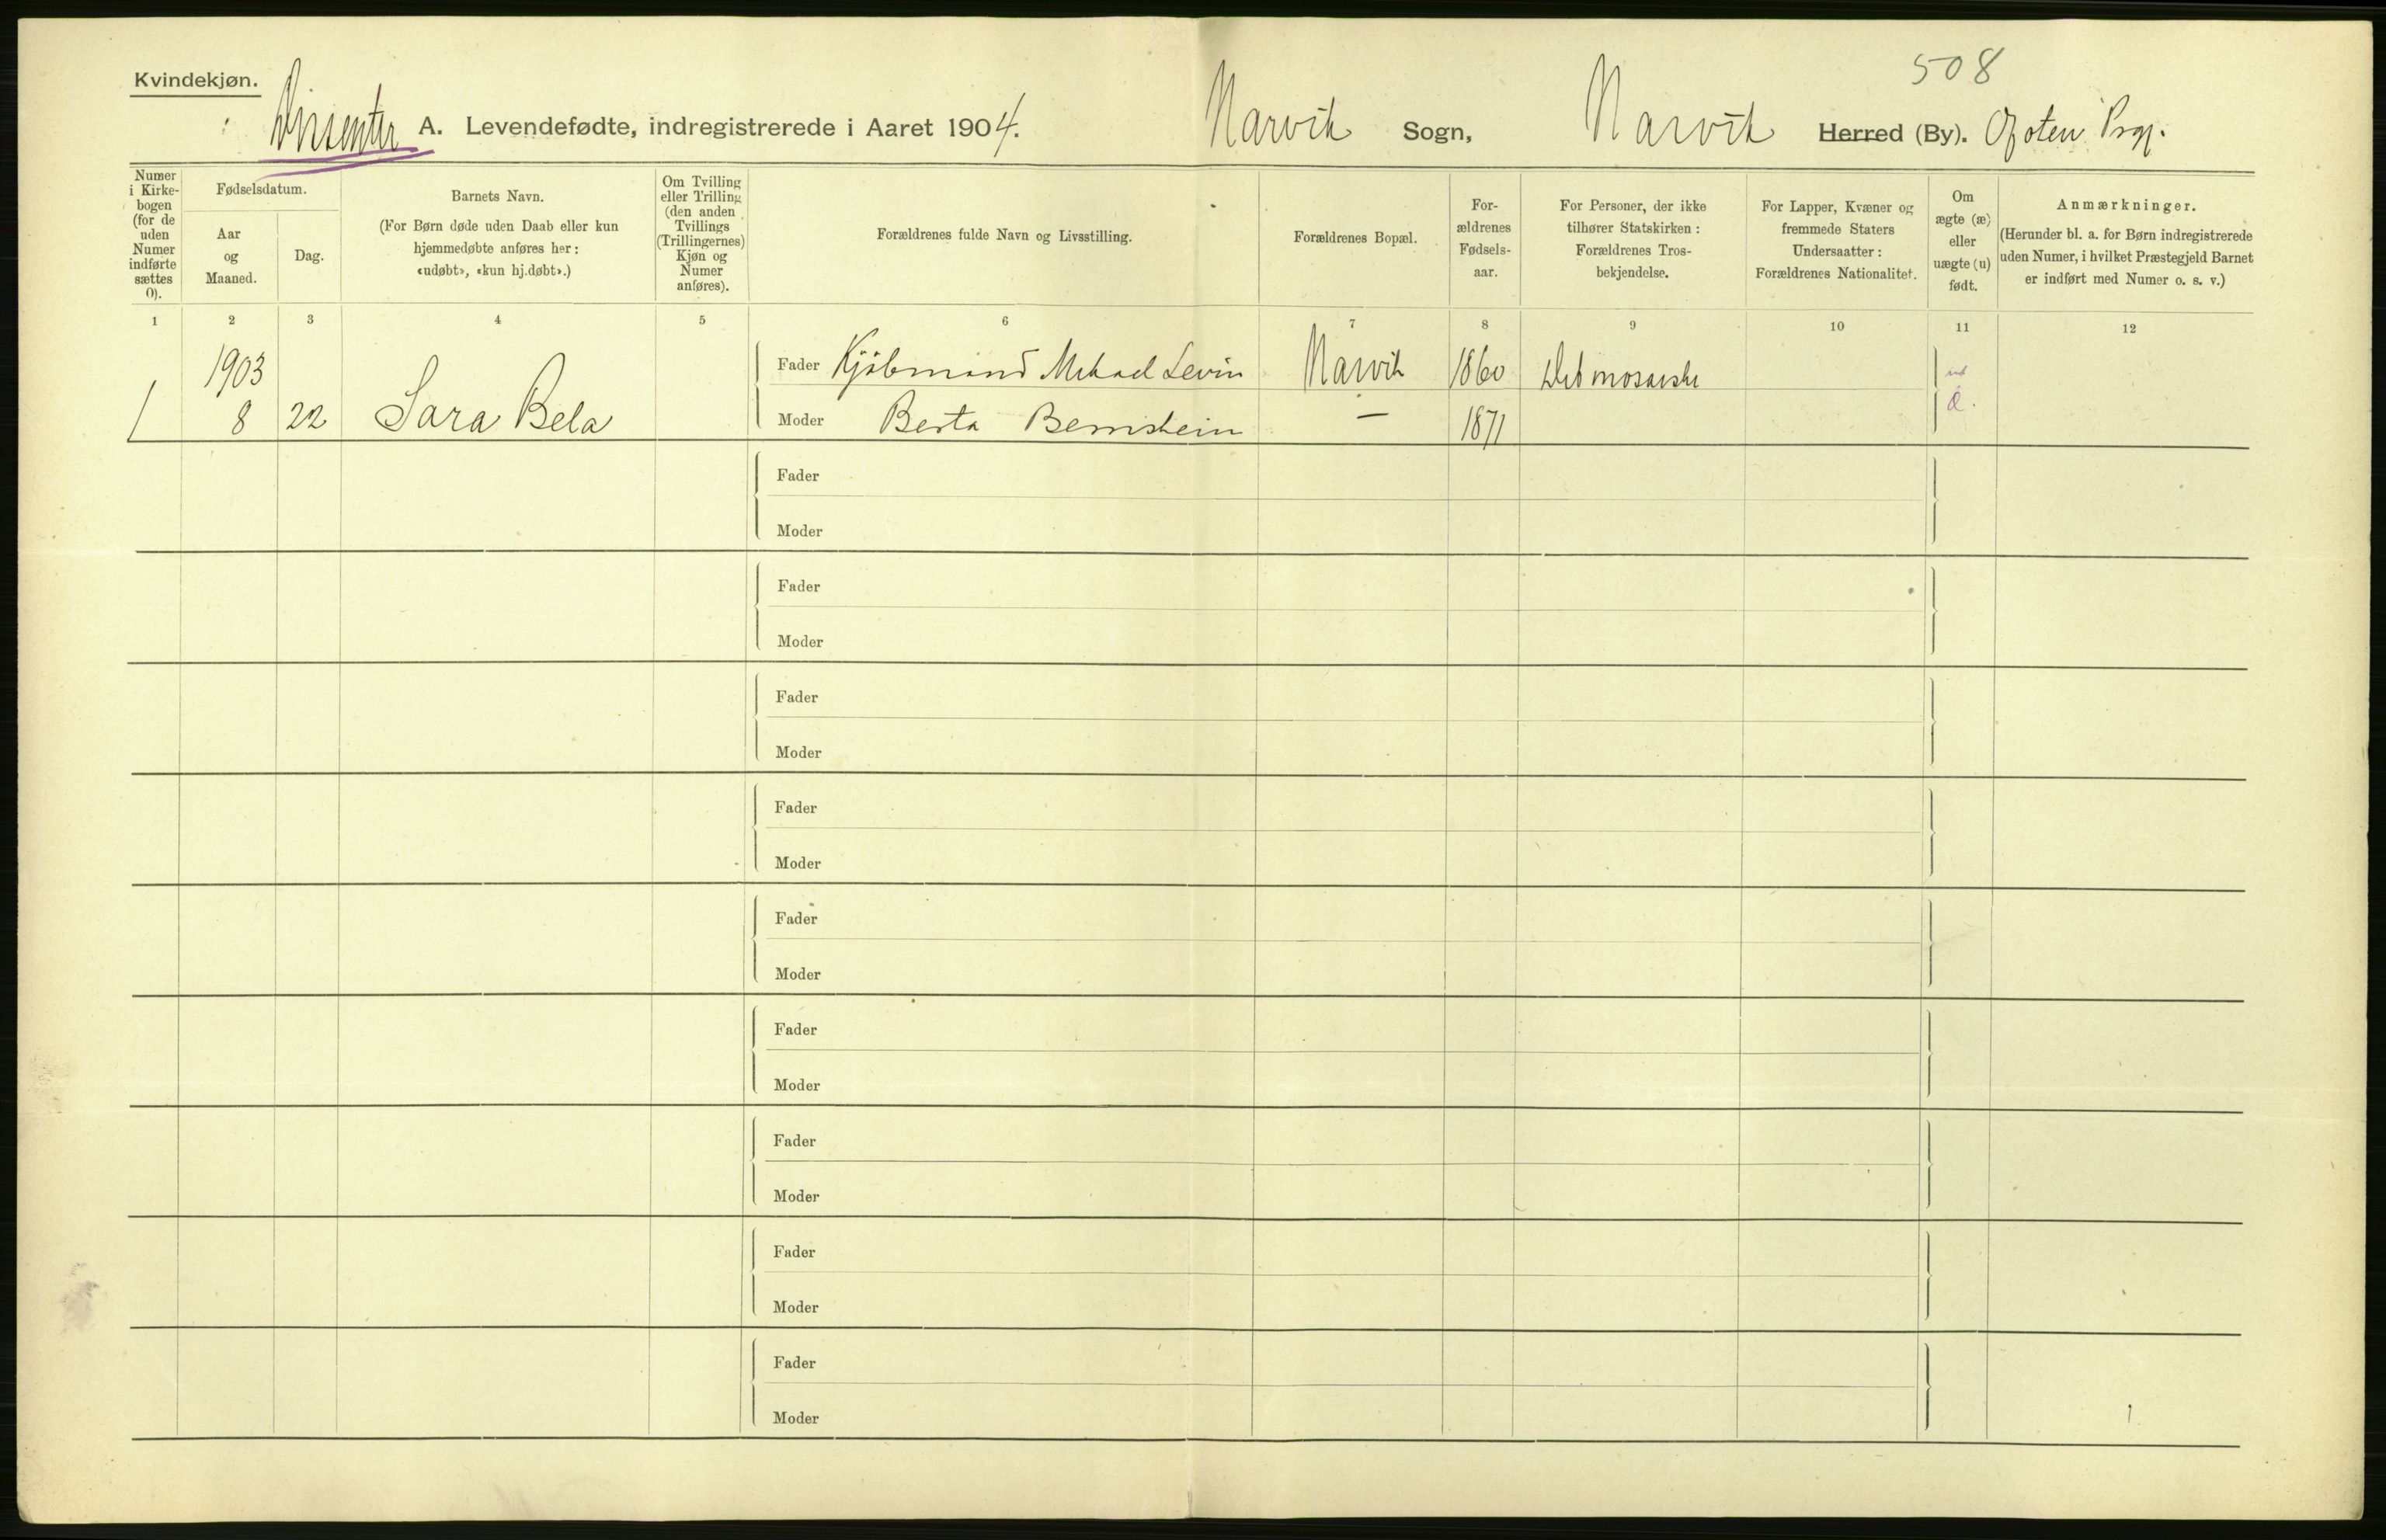 508
Kvindekjøn.
Dissenter A. Levendefødte, indregistrerede i Aaret 1904. Narvik Sogn, Narvik Herred (By). Ofoten Prgj.
Numer i Kirke-bogen (for de uden Numer indførte sættes 0).
Fødselsdatum.
Aar og Maaned.
Dag.
Barnets Navn.
(For Børn døde uden Daab eller kun
hjemmedøbte anføres her:
«udøbt», «kun hj.døbt».)
Om Tvilling
eller Trilling
(den anden
Tvillings
(Trillingernes)
Kjøn og
Numer
anføres).
Forældrenes fulde Navn og Livsstilling.
Forældrenes Bopæl.
For-
ældrenes
Fødsels-
aar.
For Personer, der ikke
tilhører Statskirken:
Forældrenes Tros-
bekjendelse.
For Lapper, Kvæner og
fremmede Staters
Undersaatter:
Forældrenes Nationalitet.
Om
ægte (æ)
eller
uægte (u)
født.
Anmærkninger.
(Herunder bl. a. for Børn indregistrerede
uden Numer, i hvilket Præstegjeld Barnet
er indført med Numer o. s. v.)
1 2 3 4 5 6 7 8 9 10 11 12
1903 Fader Kjöbmand Mikael Levin Narvik 1860 Det mosaiske
1 8 22 Sara Bela Moder Berta Bernstein — 1871 æ.
Fader
Moder
Fader
Moder
Fader
Moder
Fader
Moder
Fader
Moder
Fader
Moder
Fader
Moder
Fader
Moder
Fader
Moder
1